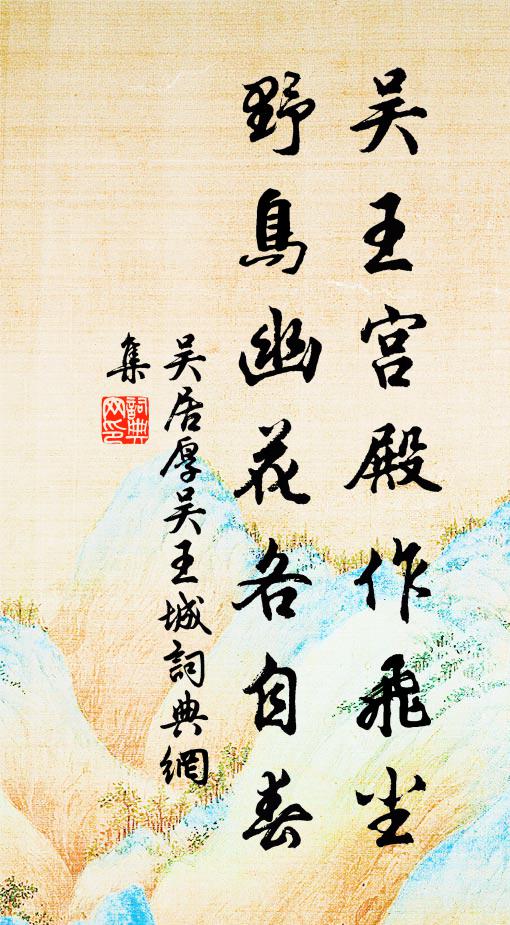 吴王宫殿作飛尘
野鳥幽花各自春
吴居厚吴王城詞典網
集
詞典
网印